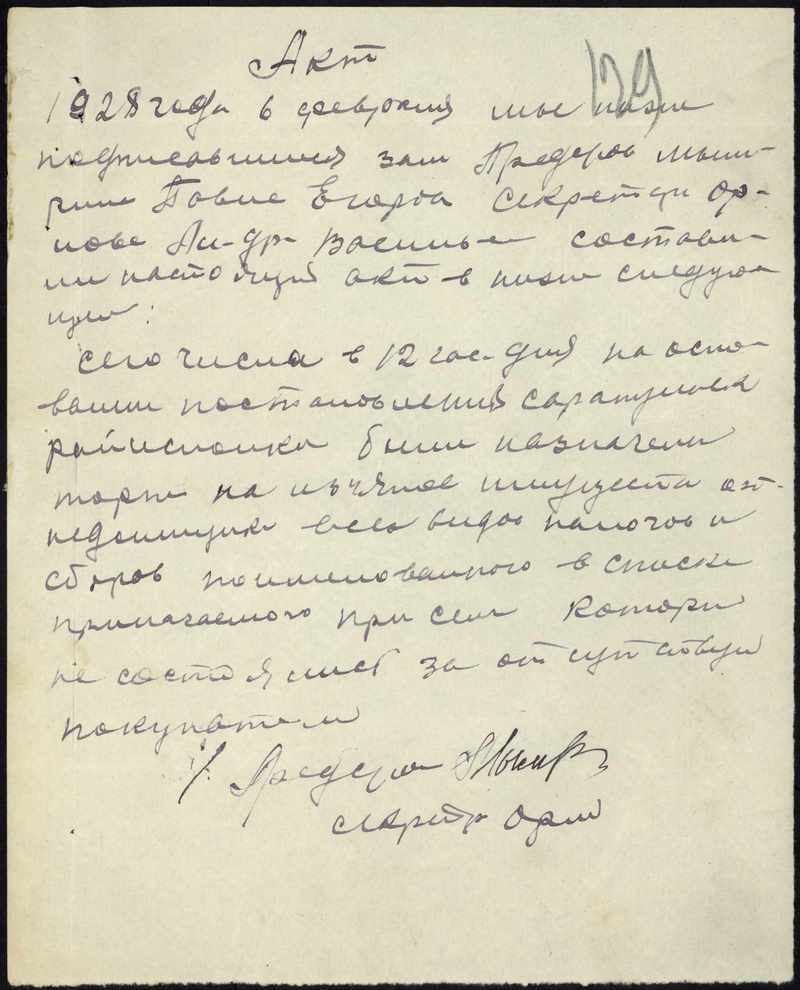 Акт
139
1928 года в февраля мы ниже
подписавшиися зам Предеров
Павле Егоров Секретар Ор-
лове Васильев состави-
ли настоящий акт в ниже следующ
сего числа в 12 час. дня на осно-
вании постановления Сарапульск
райисполка были назначени
торги на изъятое имущества от
недоимщик всех видов налогов и
сборов поименованного в списке
прилагаемого при сем котори
не состоялись за отсутствуи
покупатели
Предеров
секретр Орли